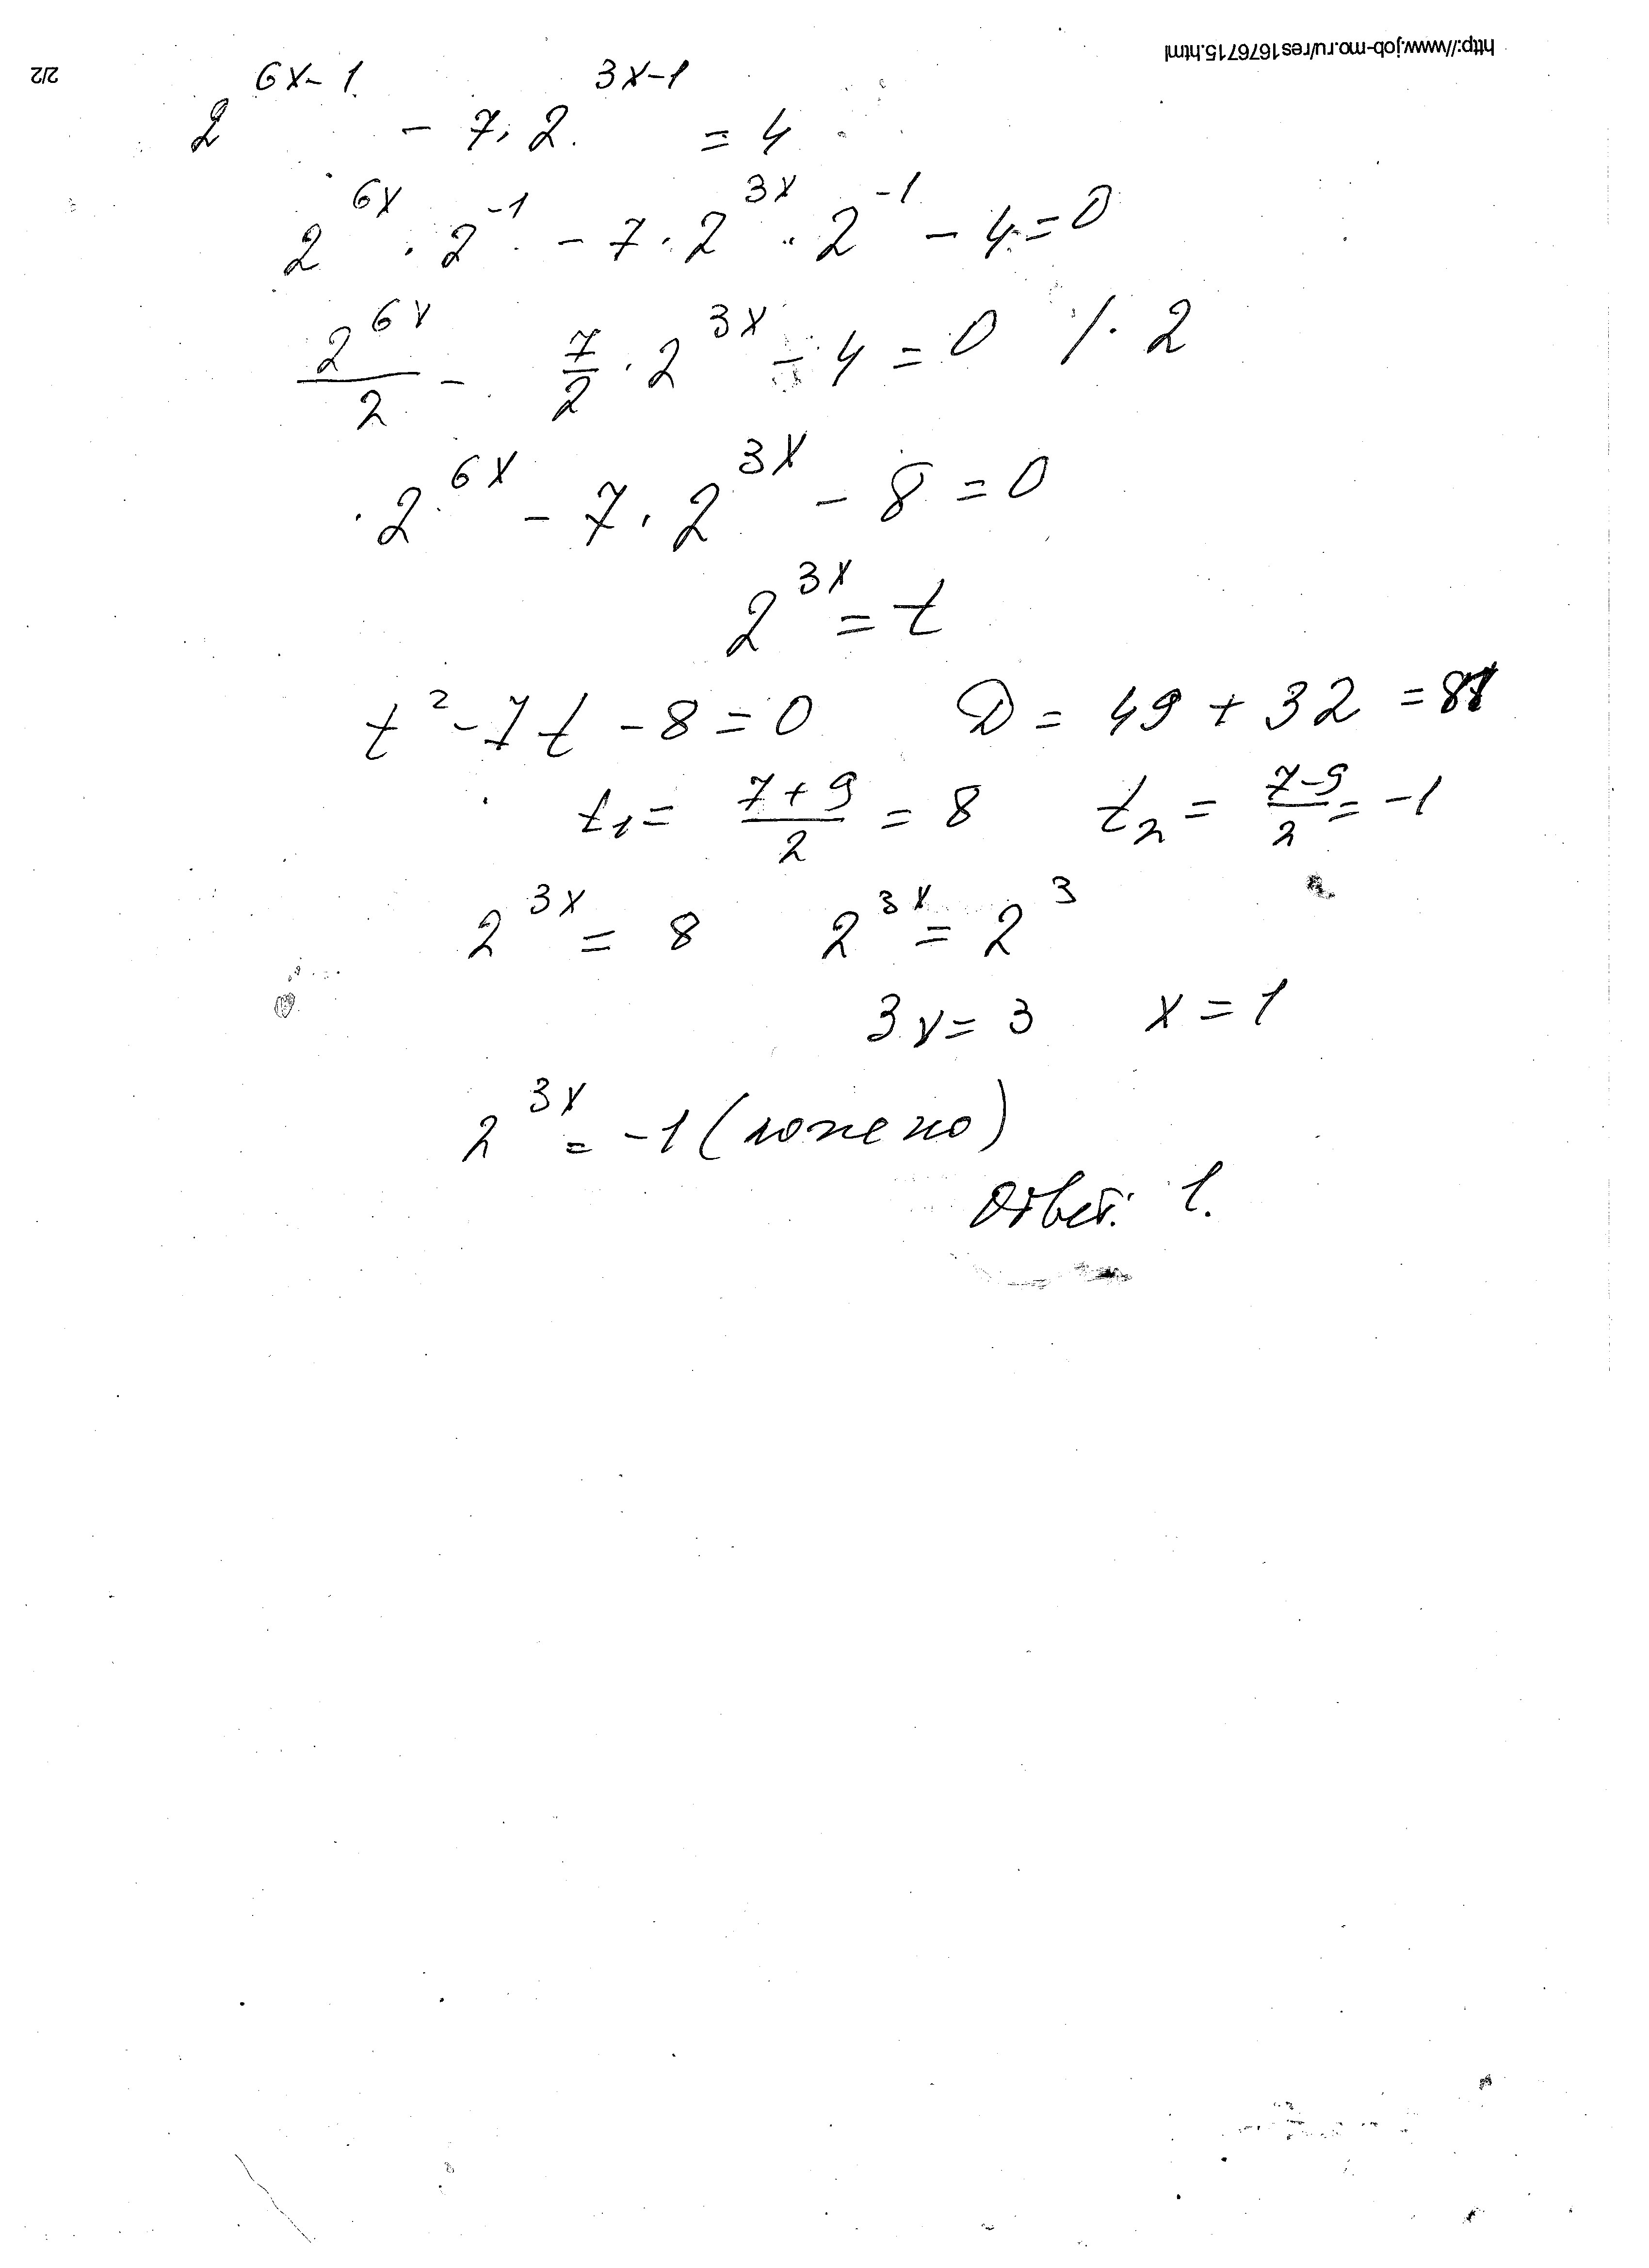 http://www.job-mo.ru/res1676715.html
2/2
2^{6x-1} - 7·2^{3x-1} = 4
2^{6x} · 2^{-1} - 7 · 2^{3x} · 2^{-1} - 4 = 0
\frac{2^{6x}}{2} - \frac{7}{2} · 2^{3x} - 4 = 0 /· 2
2^{6x} - 7 · 2^{3x} - 8 = 0
2^{3x} = t
t² - 7t - 8 = 0 D = 49 + 32 = 81
t₁ = \frac{7+9}{2} = 8 t₂ = \frac{7-9}{2} = -1
2^{3x} = 8 2^{3x} = 2^3
3x = 3 x = 1
2^{3x} = -1 (ложно)
Ответ: 1.